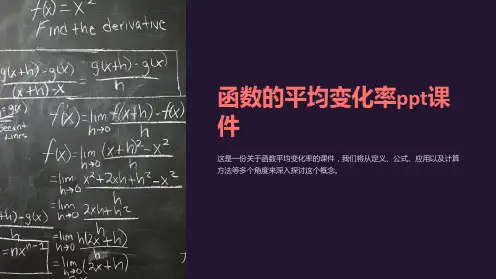 f(x) = x²
Find the derivative
g(x+h)-g(x) = g(x+h)-g(x)
(x+h)-x h
secant
Lines
f'(x)=lim f(x+h)-f(x)
h→0 h
f(x)=lim (x+h)²-x²
h→0 h
=lim x²+2xh+h²-x²
h→0 h
=lim 2xh+h²
h→0 h
+h)-g(x)
h
=lim h(2x+h)
h→0 h
=nxⁿ⁻¹
=lim (2x+h)
h→0
函数的平均变化率ppt课
件
这是一份关于函数平均变化率的课件，我们将从定义、公式、应用以及计算
方法等多个角度来深入探讨这个概念。